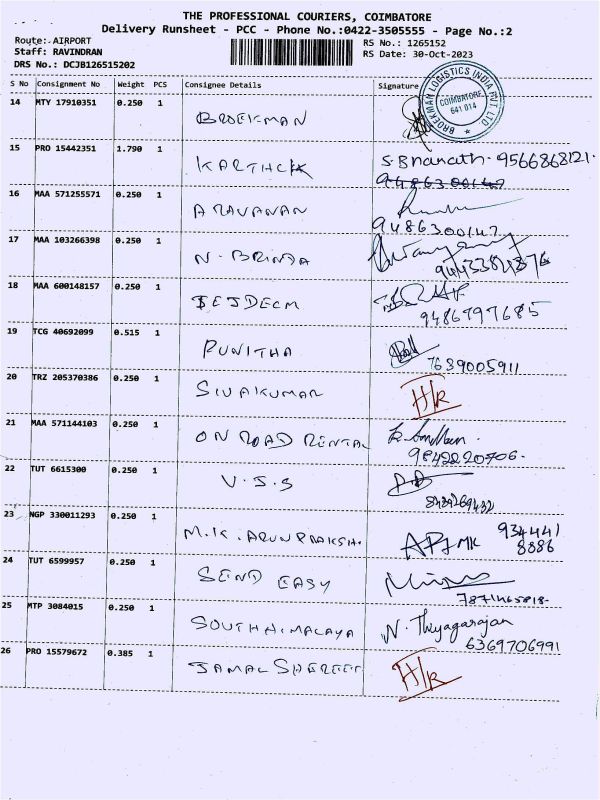 THE PROFESSIONAL COURIERS, COIMBATORE
Delivery Runsheet - PCC - Phone No.:0422-3505555 - Page No.:2
Route: AIRPORT
RS No.: 1265152
Staff: RAVINDRAN
RS Date: 30-Oct-2023
DRS No.: DCJB126515202
S No Consignment No Weight PCS Consignee Details Signature
BROEKMAN LOGISTICS INDIA PVT. LTD.
COIMBATORE
641 014
14 MTY 17910351 0.250 1 BROEKMAN
15 PRO 15442351 1.790 1 KARTHCK S. Bhanath. 9566868121.
9486300147
16 MAA 571255571 0.250 1 ARAVANAN
9486300147
17 MAA 103266398 0.250 1 N. BRINDA
18 MAA 600148157 0.250 1
9486797685
19 TCG 40692099 0.515 1 PUNITHA
7639005911
20 TRZ 205370386 0.250 1 SIVAKUMAR H/R
21 MAA 571144103 0.250 1 ON ROAD RENTAL
9842220706.
22 TUT 6615300 0.250 1 V.J.S
23 NGP 330011293 0.250 1 M.K. ARUNPRAKSH. MK 934441
8886
24 TUT 6599957 0.250 1 SEND EASY
25 MTP 3084015 0.250 1 SOUTH HIMALAYA N. Thyagarajan
6369706991
26 PRO 15579672 0.385 1 JAMAL SHEREEF H/R